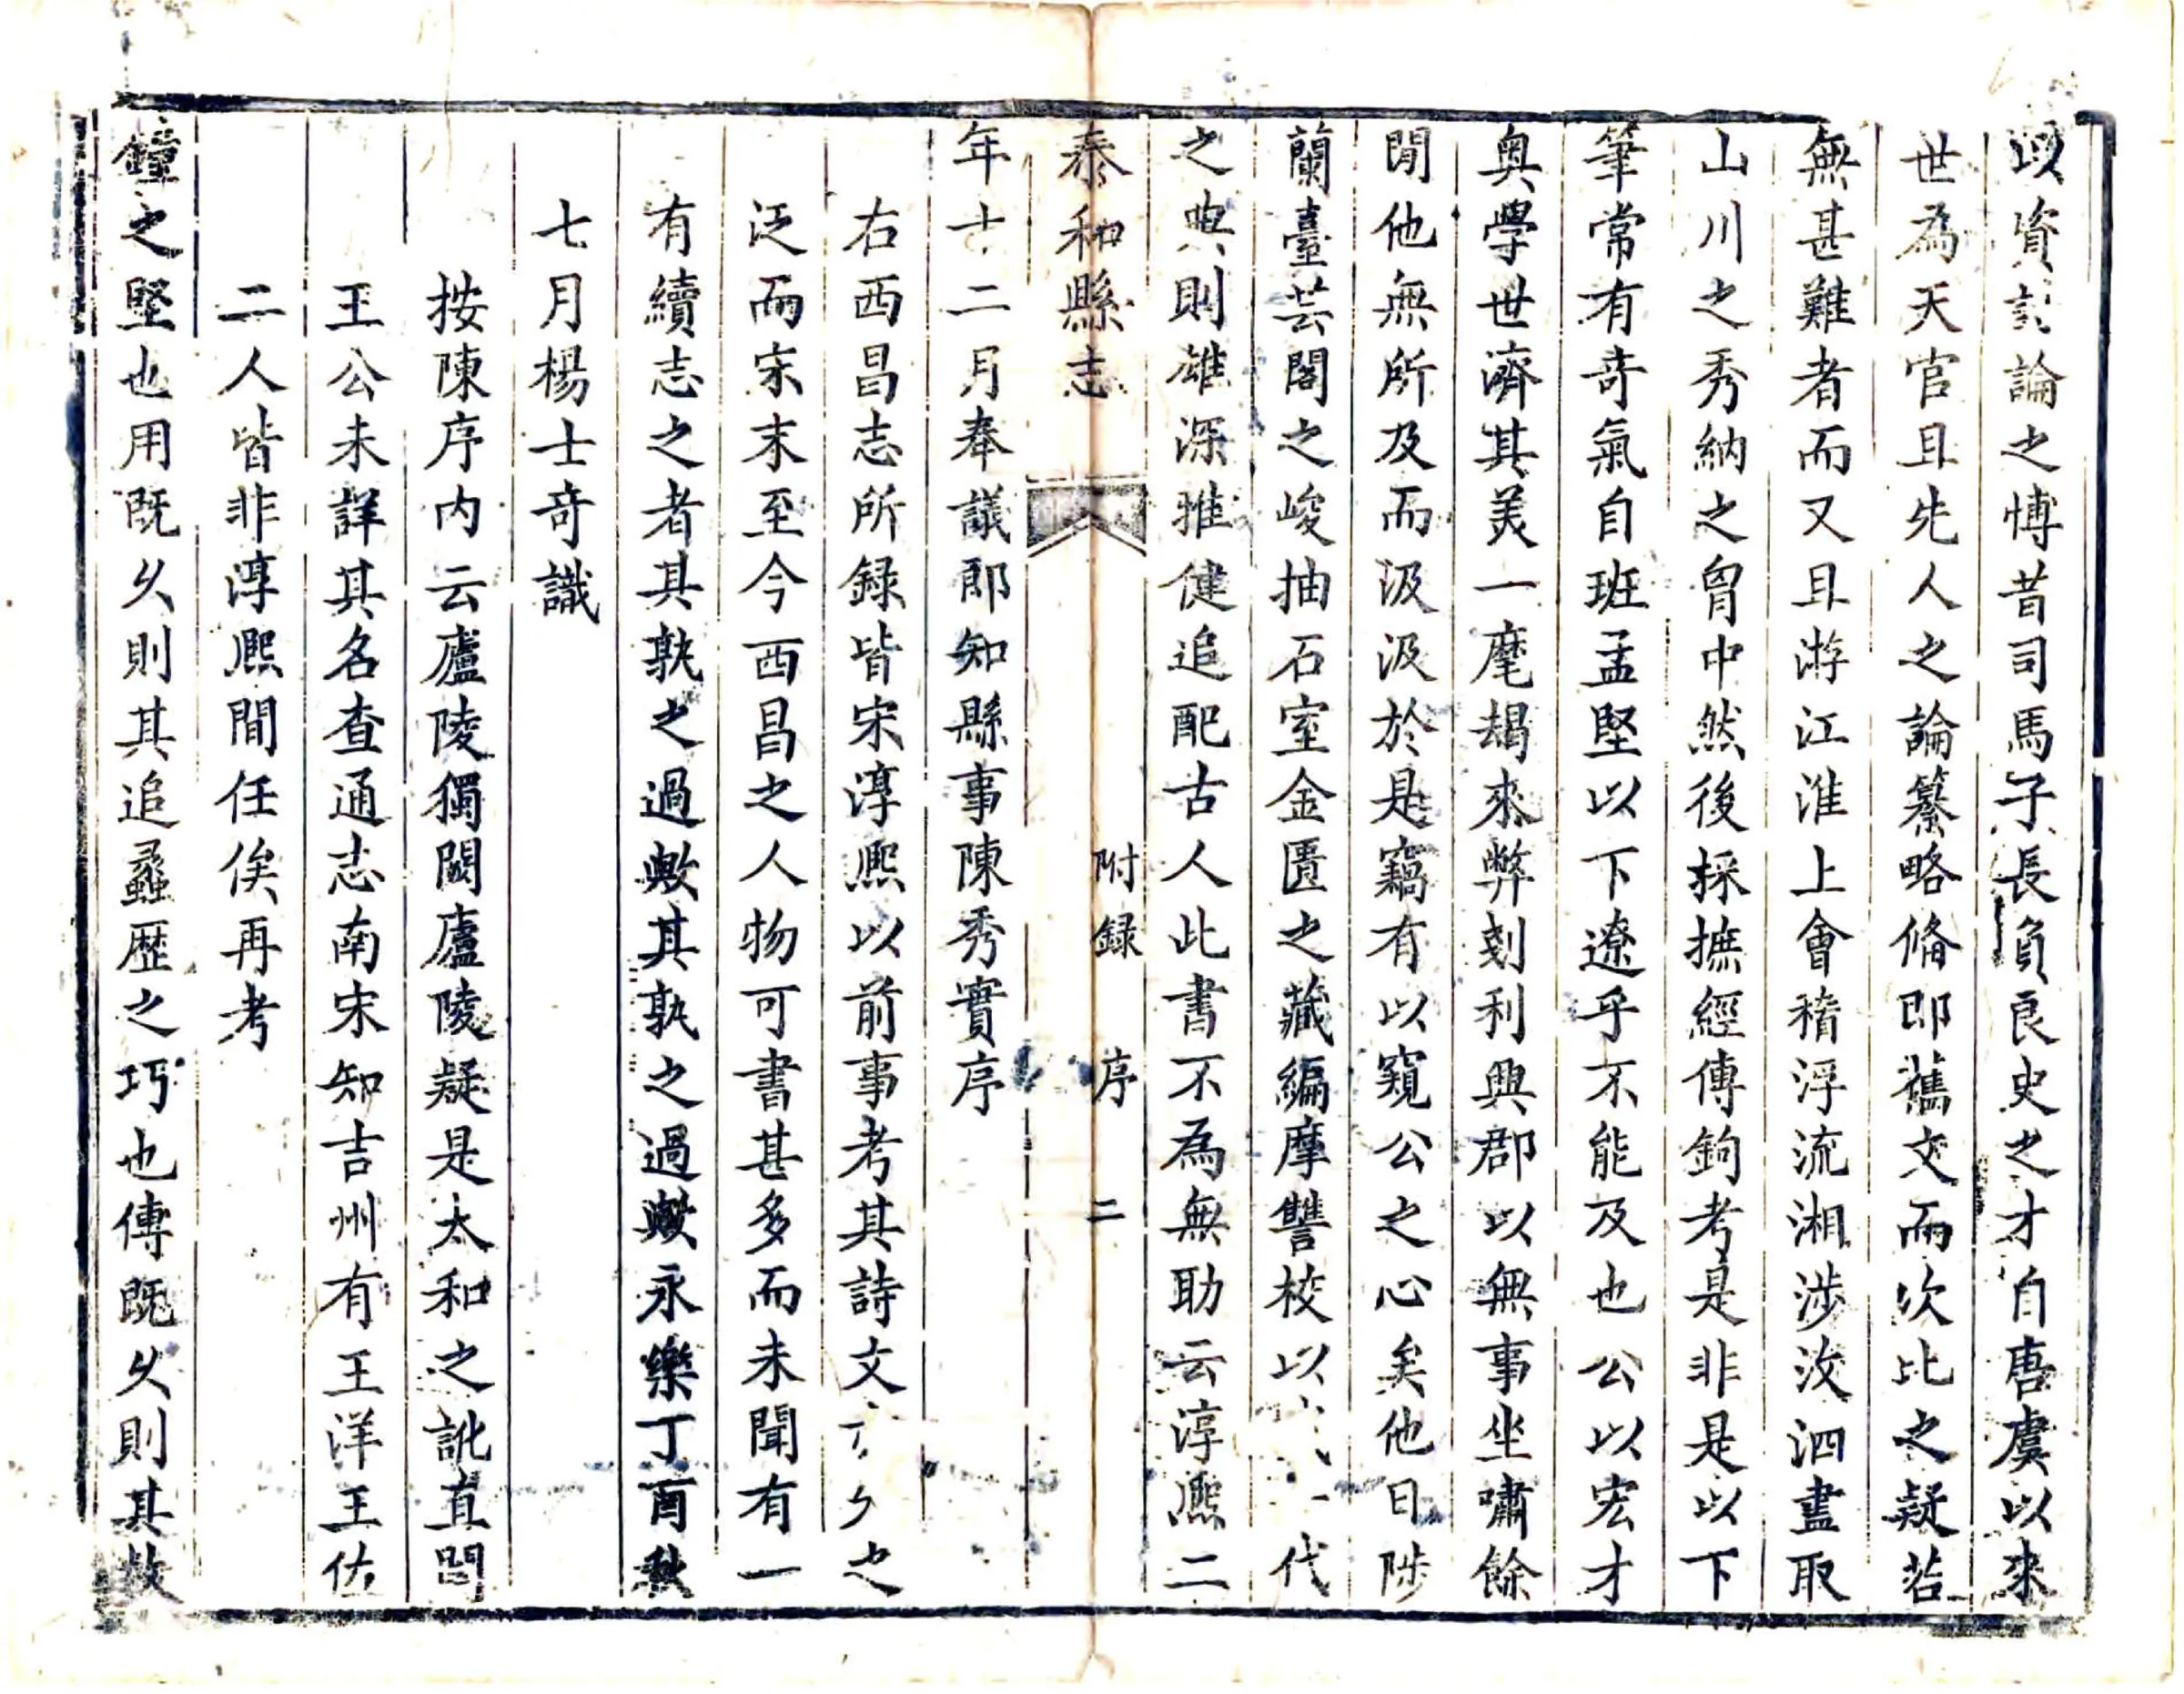 以資討論之博昔司馬子長負良史之才自唐虞以來
世為天官且先人之論纂略俻即舊文而次比之疑若
無甚難者而又且游江淮上會稽浮流湘涉汶泗盡取
山川之秀納之胷中然後採摭經傳鉤考是非是以下
筆常有奇氣自班孟堅以下遼乎不能及也公以宏才
奥學世濟其美一麾朅來弊剗利興郡以無事坐嘯餘
閒他無所及而汲汲於是竊有以窺公之心矣他日陟
蘭臺芸閣之峻抽石室金匱之藏編摩讐校以一代
之典則雄深雅健追配古人此書不為無助云淳熙二
泰和縣志 附録 序 二
年十二月奉議郎知縣事陳秀實序
右西昌志所録皆宋淳熙以前事考其詩文之
泛而宋末至今西昌之人物可書甚多而未聞有一
有續志之者其孰之過歟其孰之過歟永樂丁酉秋
七月楊士奇識
按陳序内云廬陵獨闕廬陵疑是太和之訛直閣
王公未詳其名查通志南宋知吉州有王洋王佐
二人皆非淳熙間任俟再考
鐘之堅也用既久則其追蠡歴之巧也傳既久則其故